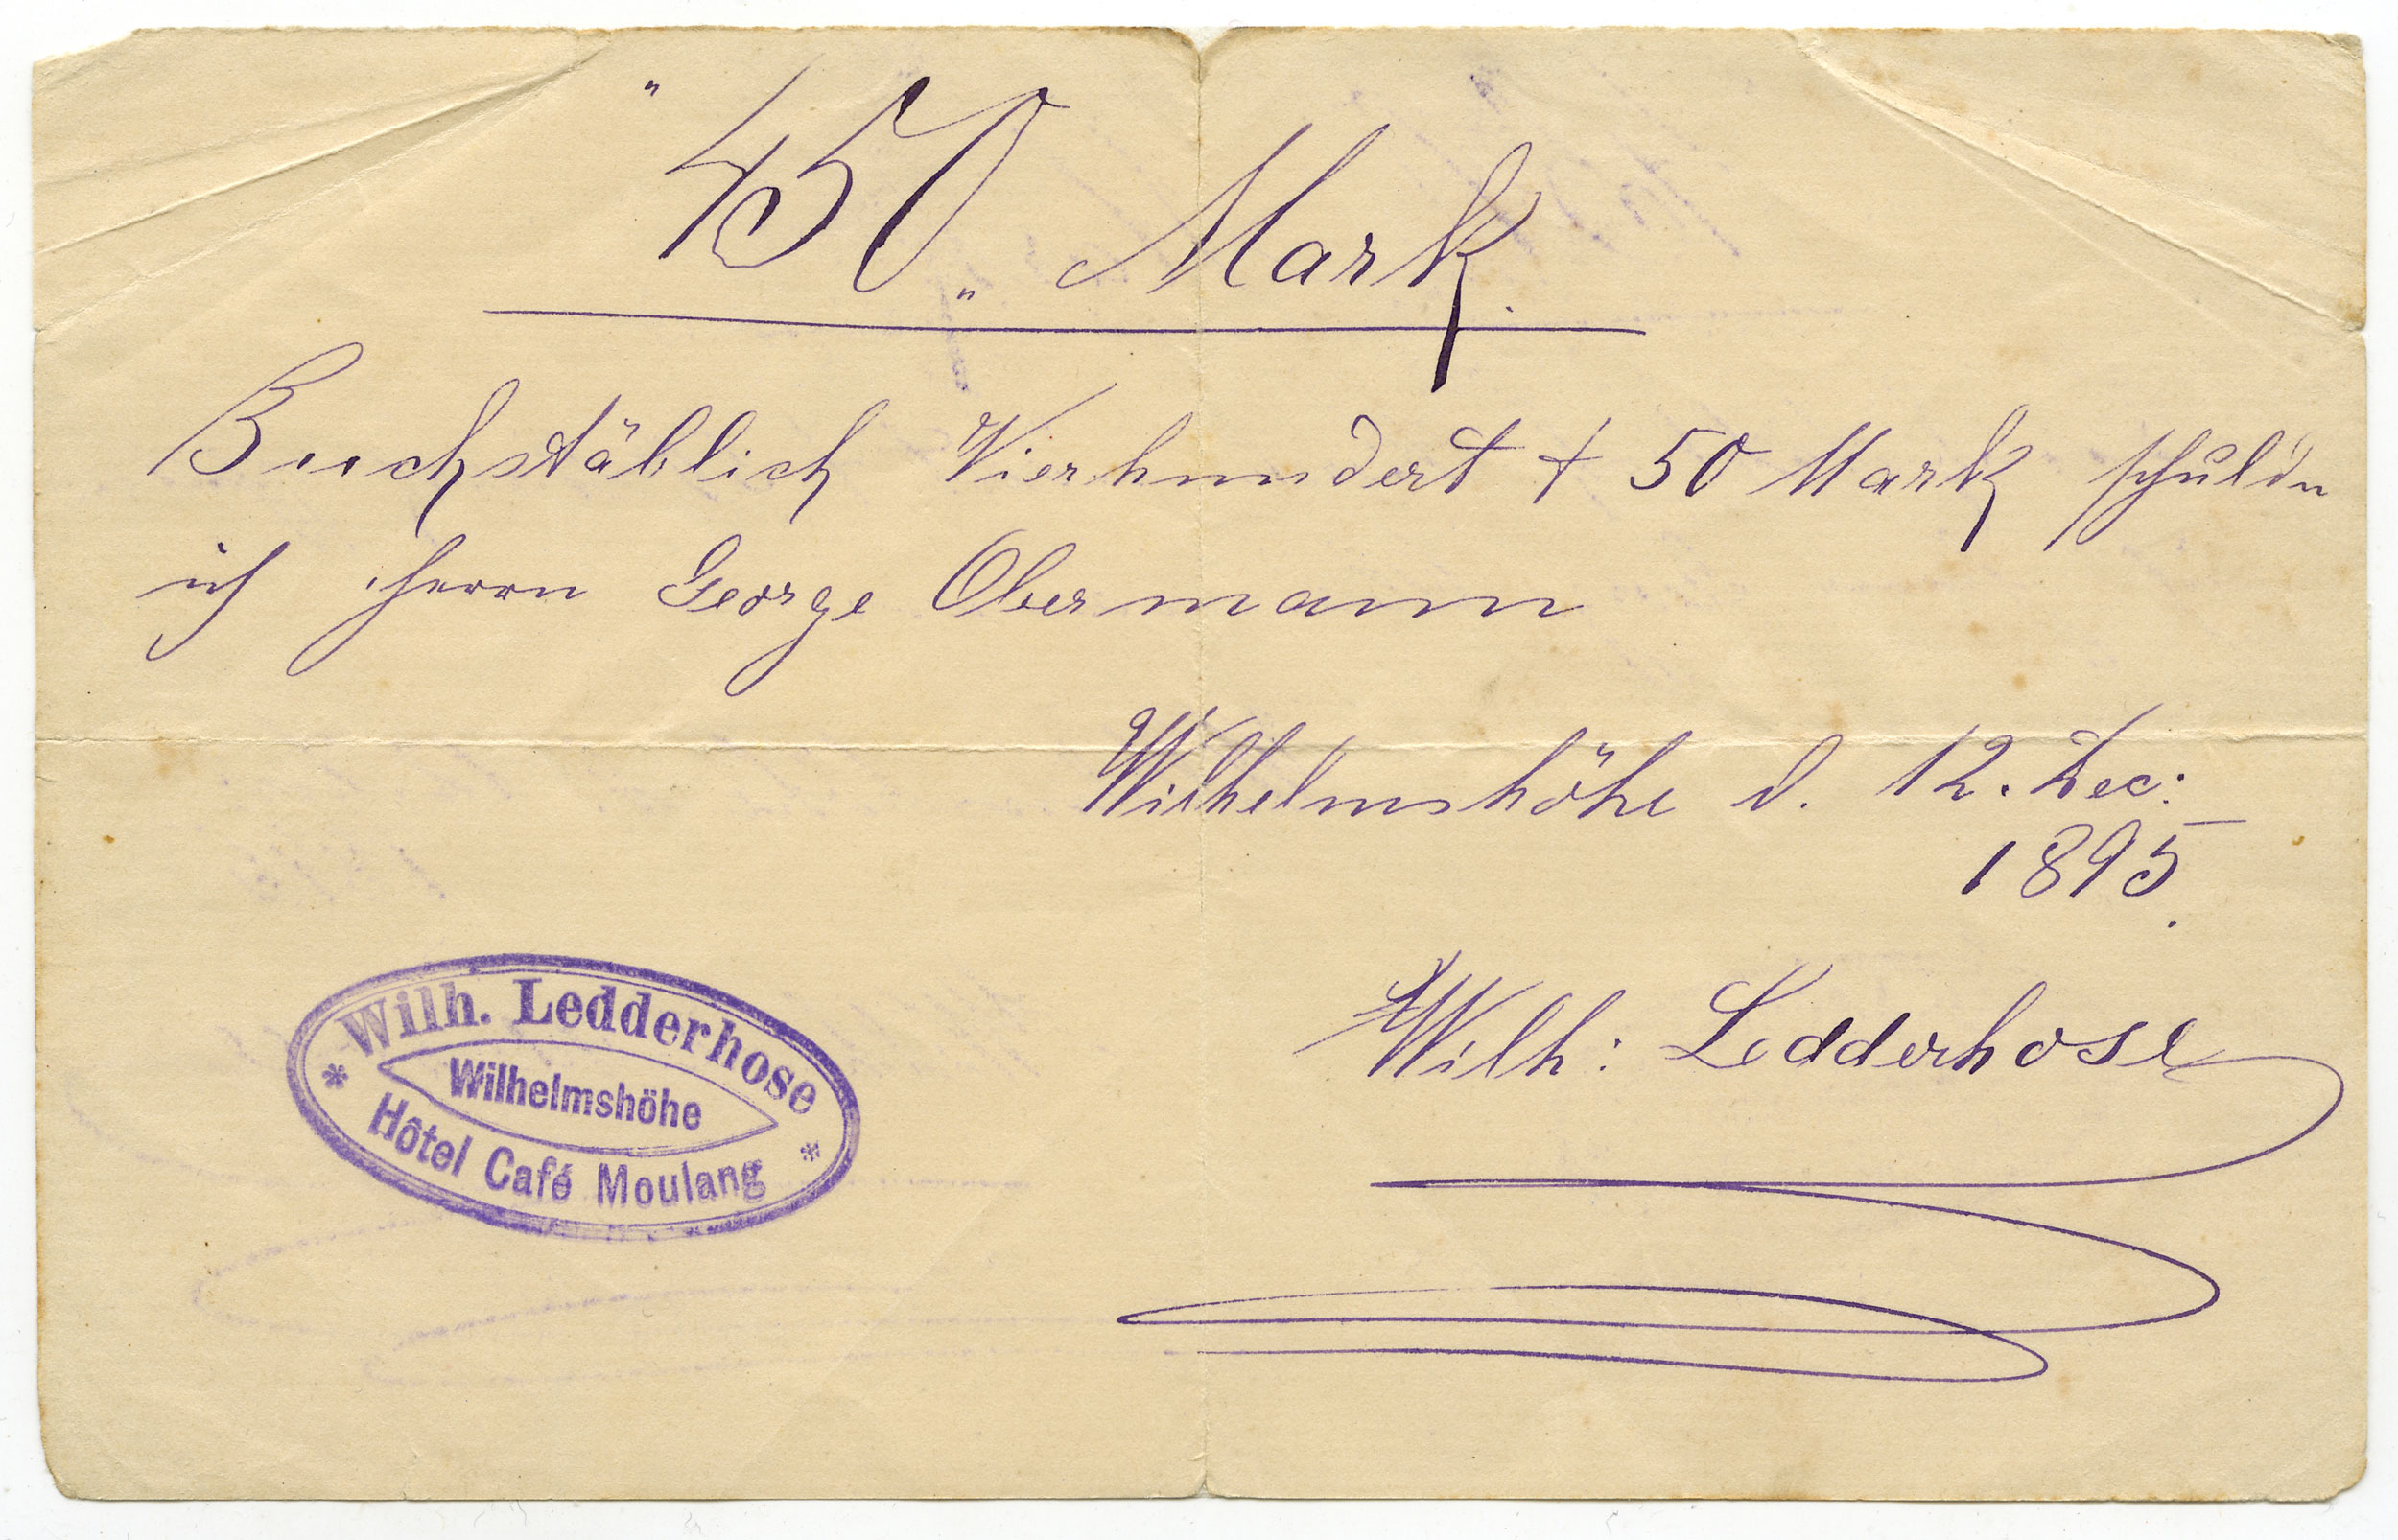 "450" Mark.
Buchstäblich Vierhundert + 50 Mark schulde
ich Herrn George Obermann
Wilhelmshöhe d. 12. Dec:
1895.
Wilh: Ledderhose
Wilh. Ledderhose
* Wilhelmshöhe *
Hôtel Café Moulang